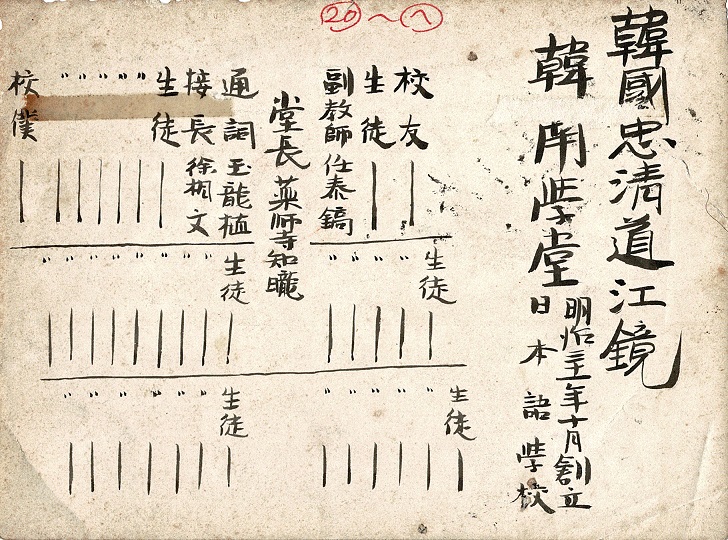 20〜へ
韓國忠清道江鏡
韓南学堂
明治 年十月創立
日本語学校
校友
生徒
副教師 任泰鎬
生徒
〃
〃
〃
〃
生徒
〃
〃
〃
〃
〃
堂長 薬師寺知朧
通詞 玉龍植
接長 徐相文
生徒
〃
〃
〃
〃
〃
校僕
生徒
〃
〃
〃
〃
〃
〃
〃
生徒
〃
〃
〃
〃
〃
〃